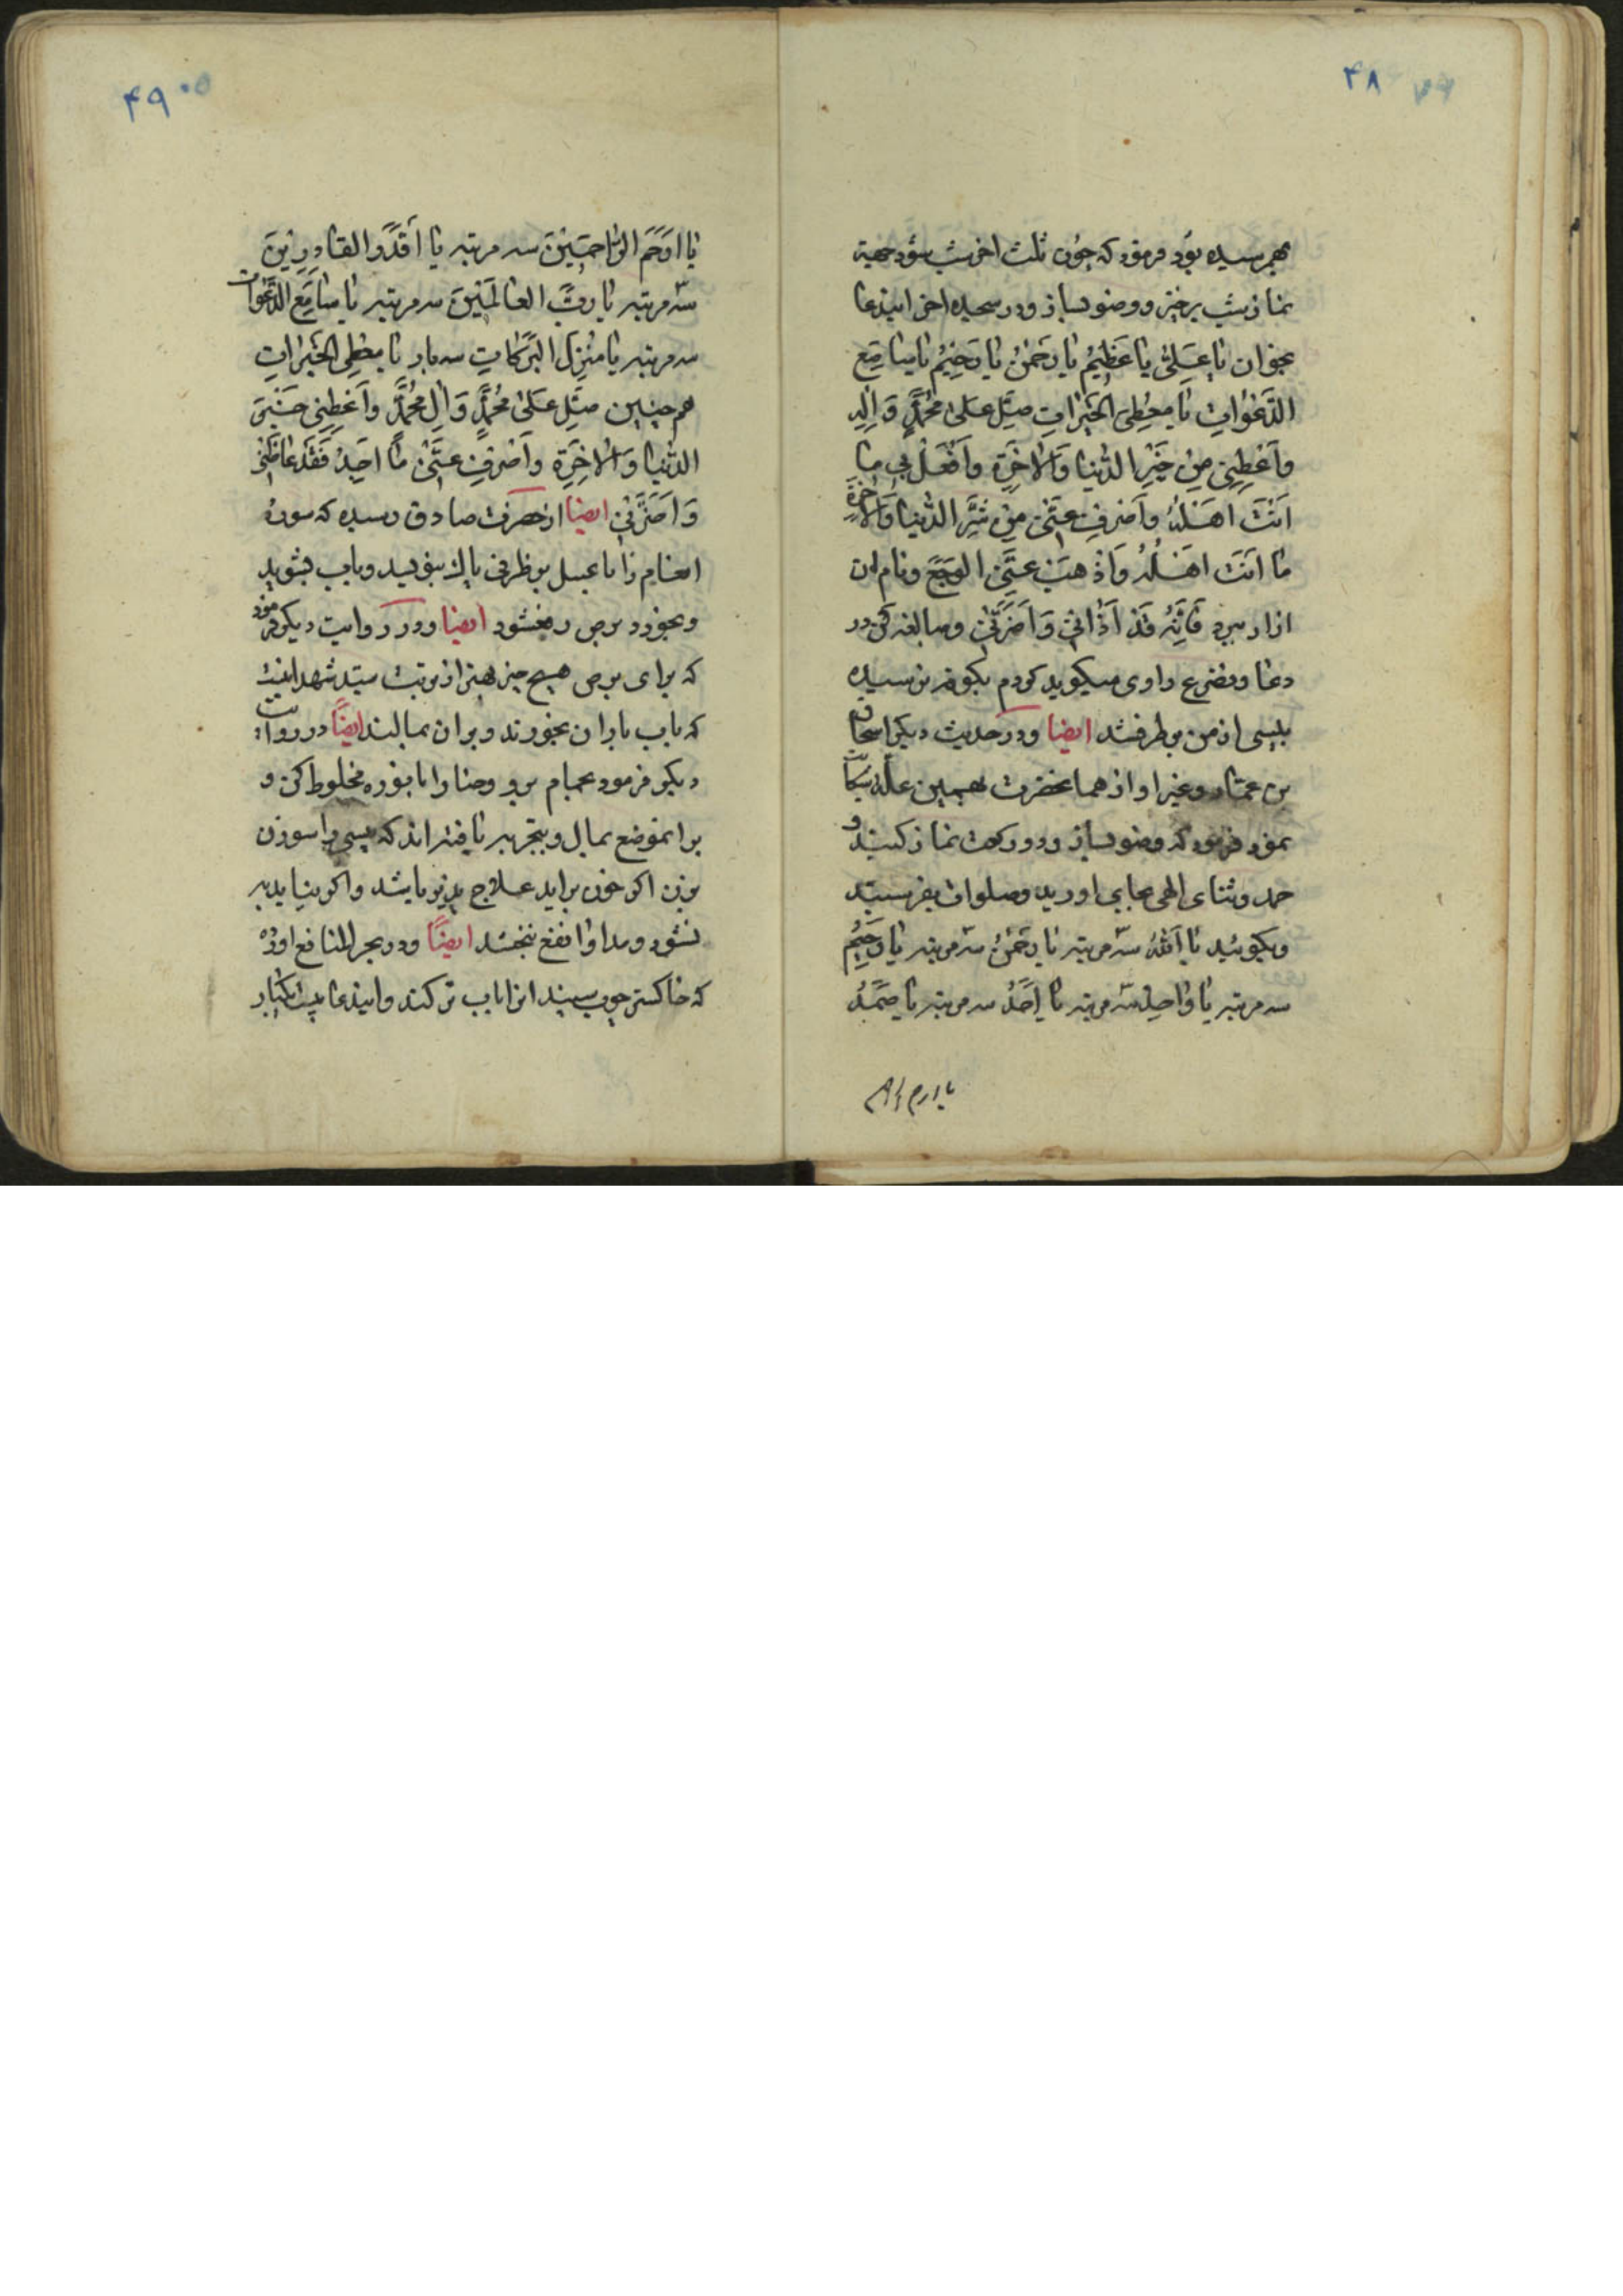 ۴۸
بهمرسیده بود فرمود که چون ثلث اخر شب شود جهة
نماز شب برخیز و وضو بساز و در سجده اخر اینذعا
بخوان یا عَلِیُّ یا عَظِیمُ یا رَحمٰنُ یا رَحِیمُ یا سامِعَ
الدَّعَواتِ یا مُعطِیَ الخَیراتِ صَلِّ عَلیٰ مُحَمَّدٍ وَ الِهِ
وَاَعطِنی مِن خَیرِ الدُّنیا وَالاخِرَةِ وَافعَل بی ما
اَنتَ اَهلُهُ وَاصرِف عَنّی مِن شَرِّ الدُّنیا وَالاخِرَةِ
ما اَنتَ اَهلُهُ وَاَذهِب عَنِّی الوَجَعَ و نام ان
ازار ببرد فَاِنَّهُ قَد اَذانی وَ اَضَرَّنی و مبالغه کن در
دعا و تضرع راوی میگوید کردم بکوفه نرسیده
پیسی از من برطرف شد ایضا و در حدیث دیکر اسحاق
بن عمار و غیر او از همانحضرت بهمین علة
نمود فرمود که وضو بساز و دو رکعت نماز کنید و
حمد و ثنای الهی بجای اورید و صلوات بفرستید
و بکوئید یا اَللهُ سه مرتبه یا رَحمٰنُ سه مرتبه یا رَحِیمُ
سه مرتبه یا واحِدُ سه مرتبه یا اَحَدُ سه مرتبه یا صَمَدُ
یا ارحم الر
۴۹
یا اَرحَمَ الرّاحِمینَ سه مرتبه یا اَقدَرَ القادِرینَ
سه مرتبه یا رَبَّ العالَمینَ سه مرتبه یا سامِعَ الدَّعَوات
سه مرتبه یا مُنزِلَ البَرَکاتِ سه بار یا معطِی الخَیراتِ
هم چنین صَلِّ عَلیٰ مُحَمَّدٍ وَ الِ مُحَمَّدٍ وَاَعطِنی خَیرَ
الدُّنیا وَالاخِرَةِ وَاصرِف عَنّی ما اَجِدُ فَقَد غاظَنی
وَ اَضَرَّنی ایضا از حضرت صادق رسیده که سورهٔ
انعام را با عسل بر ظرفی پاک بنویسد و باب بشوید
و بخورد برص رفع شود ایضا و در روایت دیکر فرمود
که برای برص هیچ چیز بهتر از تربت سید شهدا نیست
که باب باران بخورند و بر ان بمالند ایضًا در روایت
دیکر فرمود بحمام برو و حنا را با نوره مخلوط کن و
بر انموضع بمال و بتجربه یافته اند که پیسی را سوزن
بزن اکر خون براید علاج پذیر باشد و اکر نیاید به
نشود و مداوا نفع نبخشد ایضًا و در بحر المنافع اورده
که خاکستر چوب سپند انرا باب تر کند و اینذعا بیست یکبار